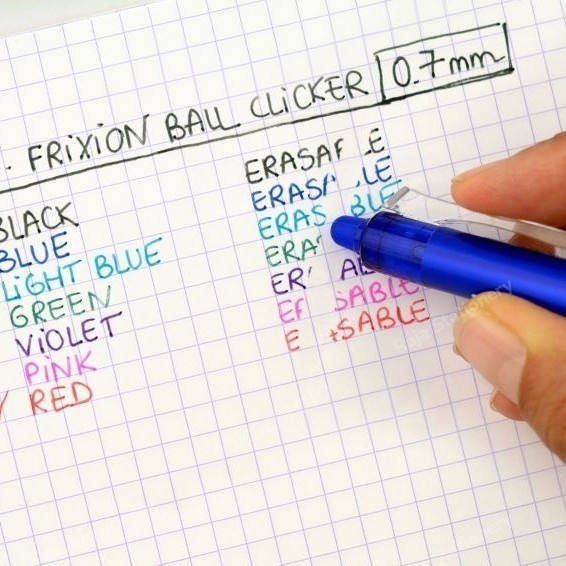 . FRiXiON BALL CLiCKER 0.7mm
BLACK
BLUE
LiGHT BLUE
GREEN
ViOLET
PiNK
RED
ERASAF E
ERAS LE
ERAS BLE
ERA
ER AB
EF SABLE
E SABLE